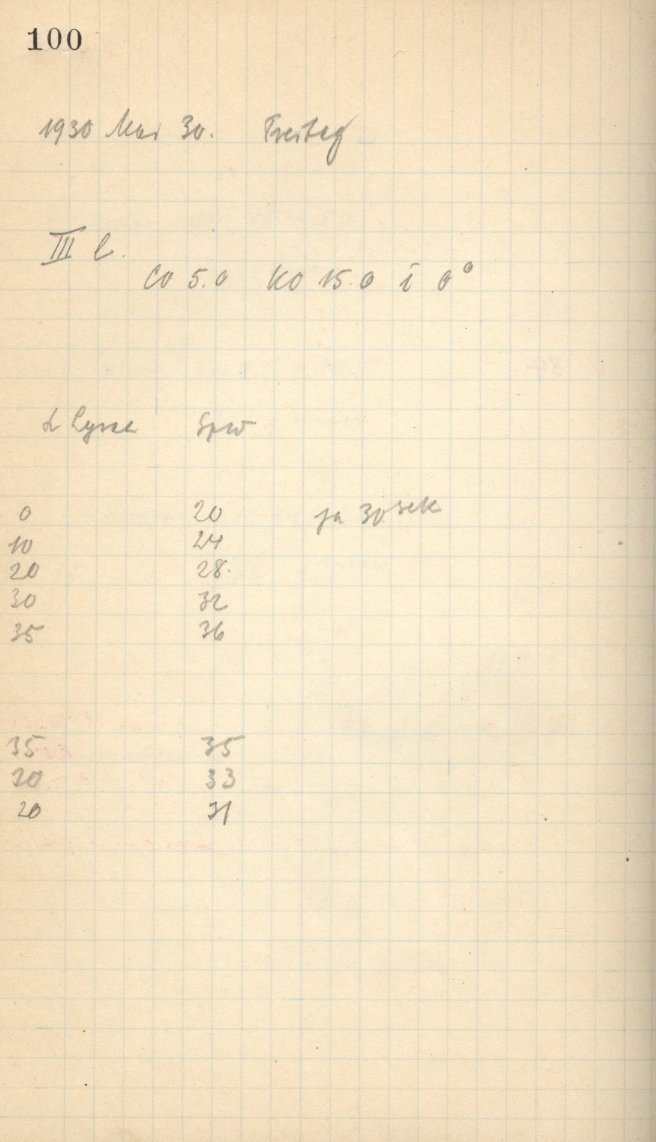 100
1930 Mai 30. Freitag
III l.
CO 5.0 KO 15.0 i 0°
Spw
0 20 ja 30 sek
10 24
20 28.
30 32
35 36
35 35
20 33
20 31